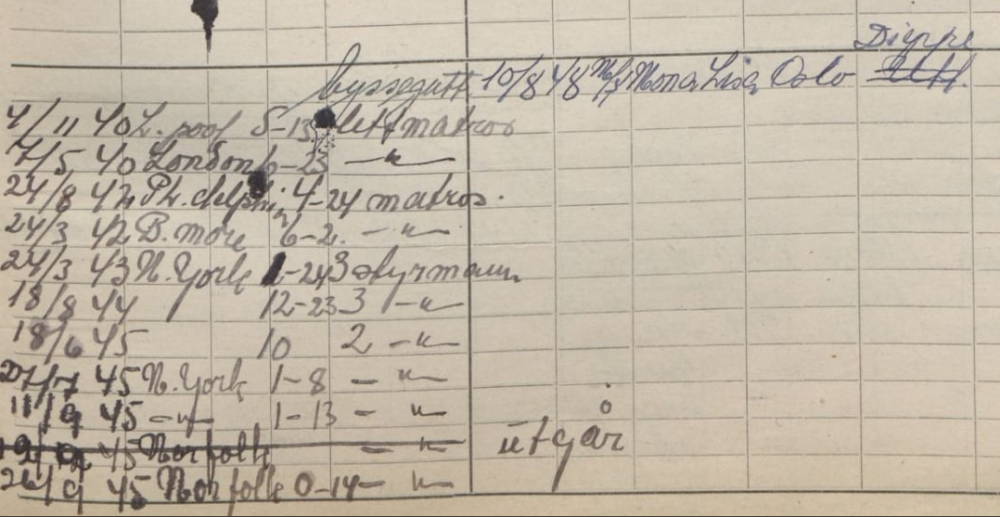 Dieppe
byssegutt 10/8 48 M/S Mona Lisa Oslo
4/11 40 L. pool 5-13 lettmatros
7/5 40 London 6-23 —"—
24/8 42 Ph. delphi 4-24 matros.
24/3 42 B. more 6-2. —"—
24/3 43 N. York 1-24 3 styrmann
18/8 44 12-23 3 —"—
18/6 45 10 2 —"—
27/7 45 N. York 1-8 — "—
11/9 45 —"— 1-13 — "—
45 Norfolk — "—
utgår
26/9 45 Norfolk 0-14 — "—